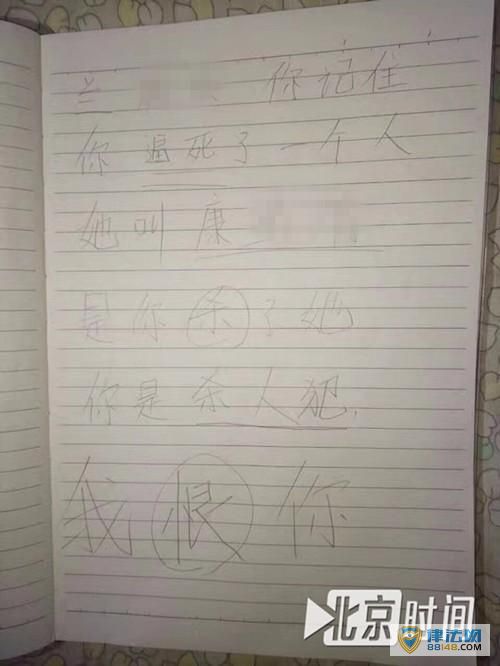 兰 你记住
你逼死了一个人
她叫康
是你杀了她
你是杀人犯.
我恨你
北京时间
律法网
88148.com